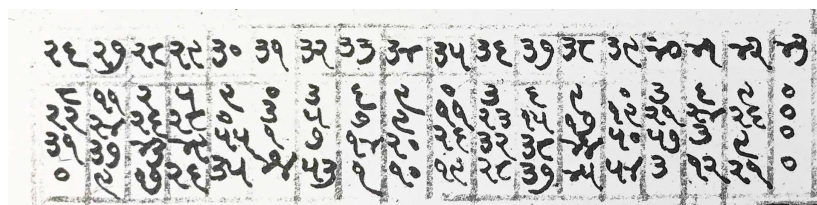 २६ २७ २८ २९ ३० ३१ ३२ ३३ ३४ ३५ ३६ ३७ ३८ ३९ ४० ४१ ४२ ४३
८ ११ २ ५ ९ ० ३ ६ ९ ० ३ ६ ९ ० ३ ६ ९ ०
२२ २४ २६ २८ ० ३ ५ ७ ९ ११ १३ १५ १७ १९ २१ २४ २६ ०
३१ ३७ ४३ ४९ ५५ १ ७ १४ २० २६ ३२ ३८ ४४ ५० ५७ ३ ९ ०
० ९ १७ २६ ३५ ४४ ५३ १ १० १९ २८ ३७ ४५ ५४ ३ १२ २१ ०